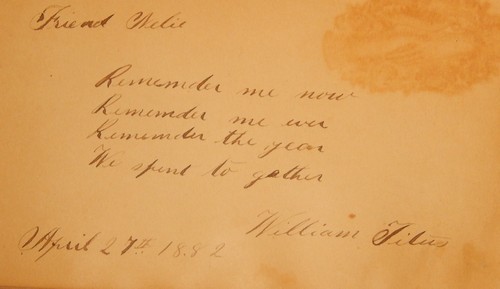 Friend Nelie
Rememder me now
Rememder me ever
Rememder the year
We spent to gether
William Titus
April 27th 1882